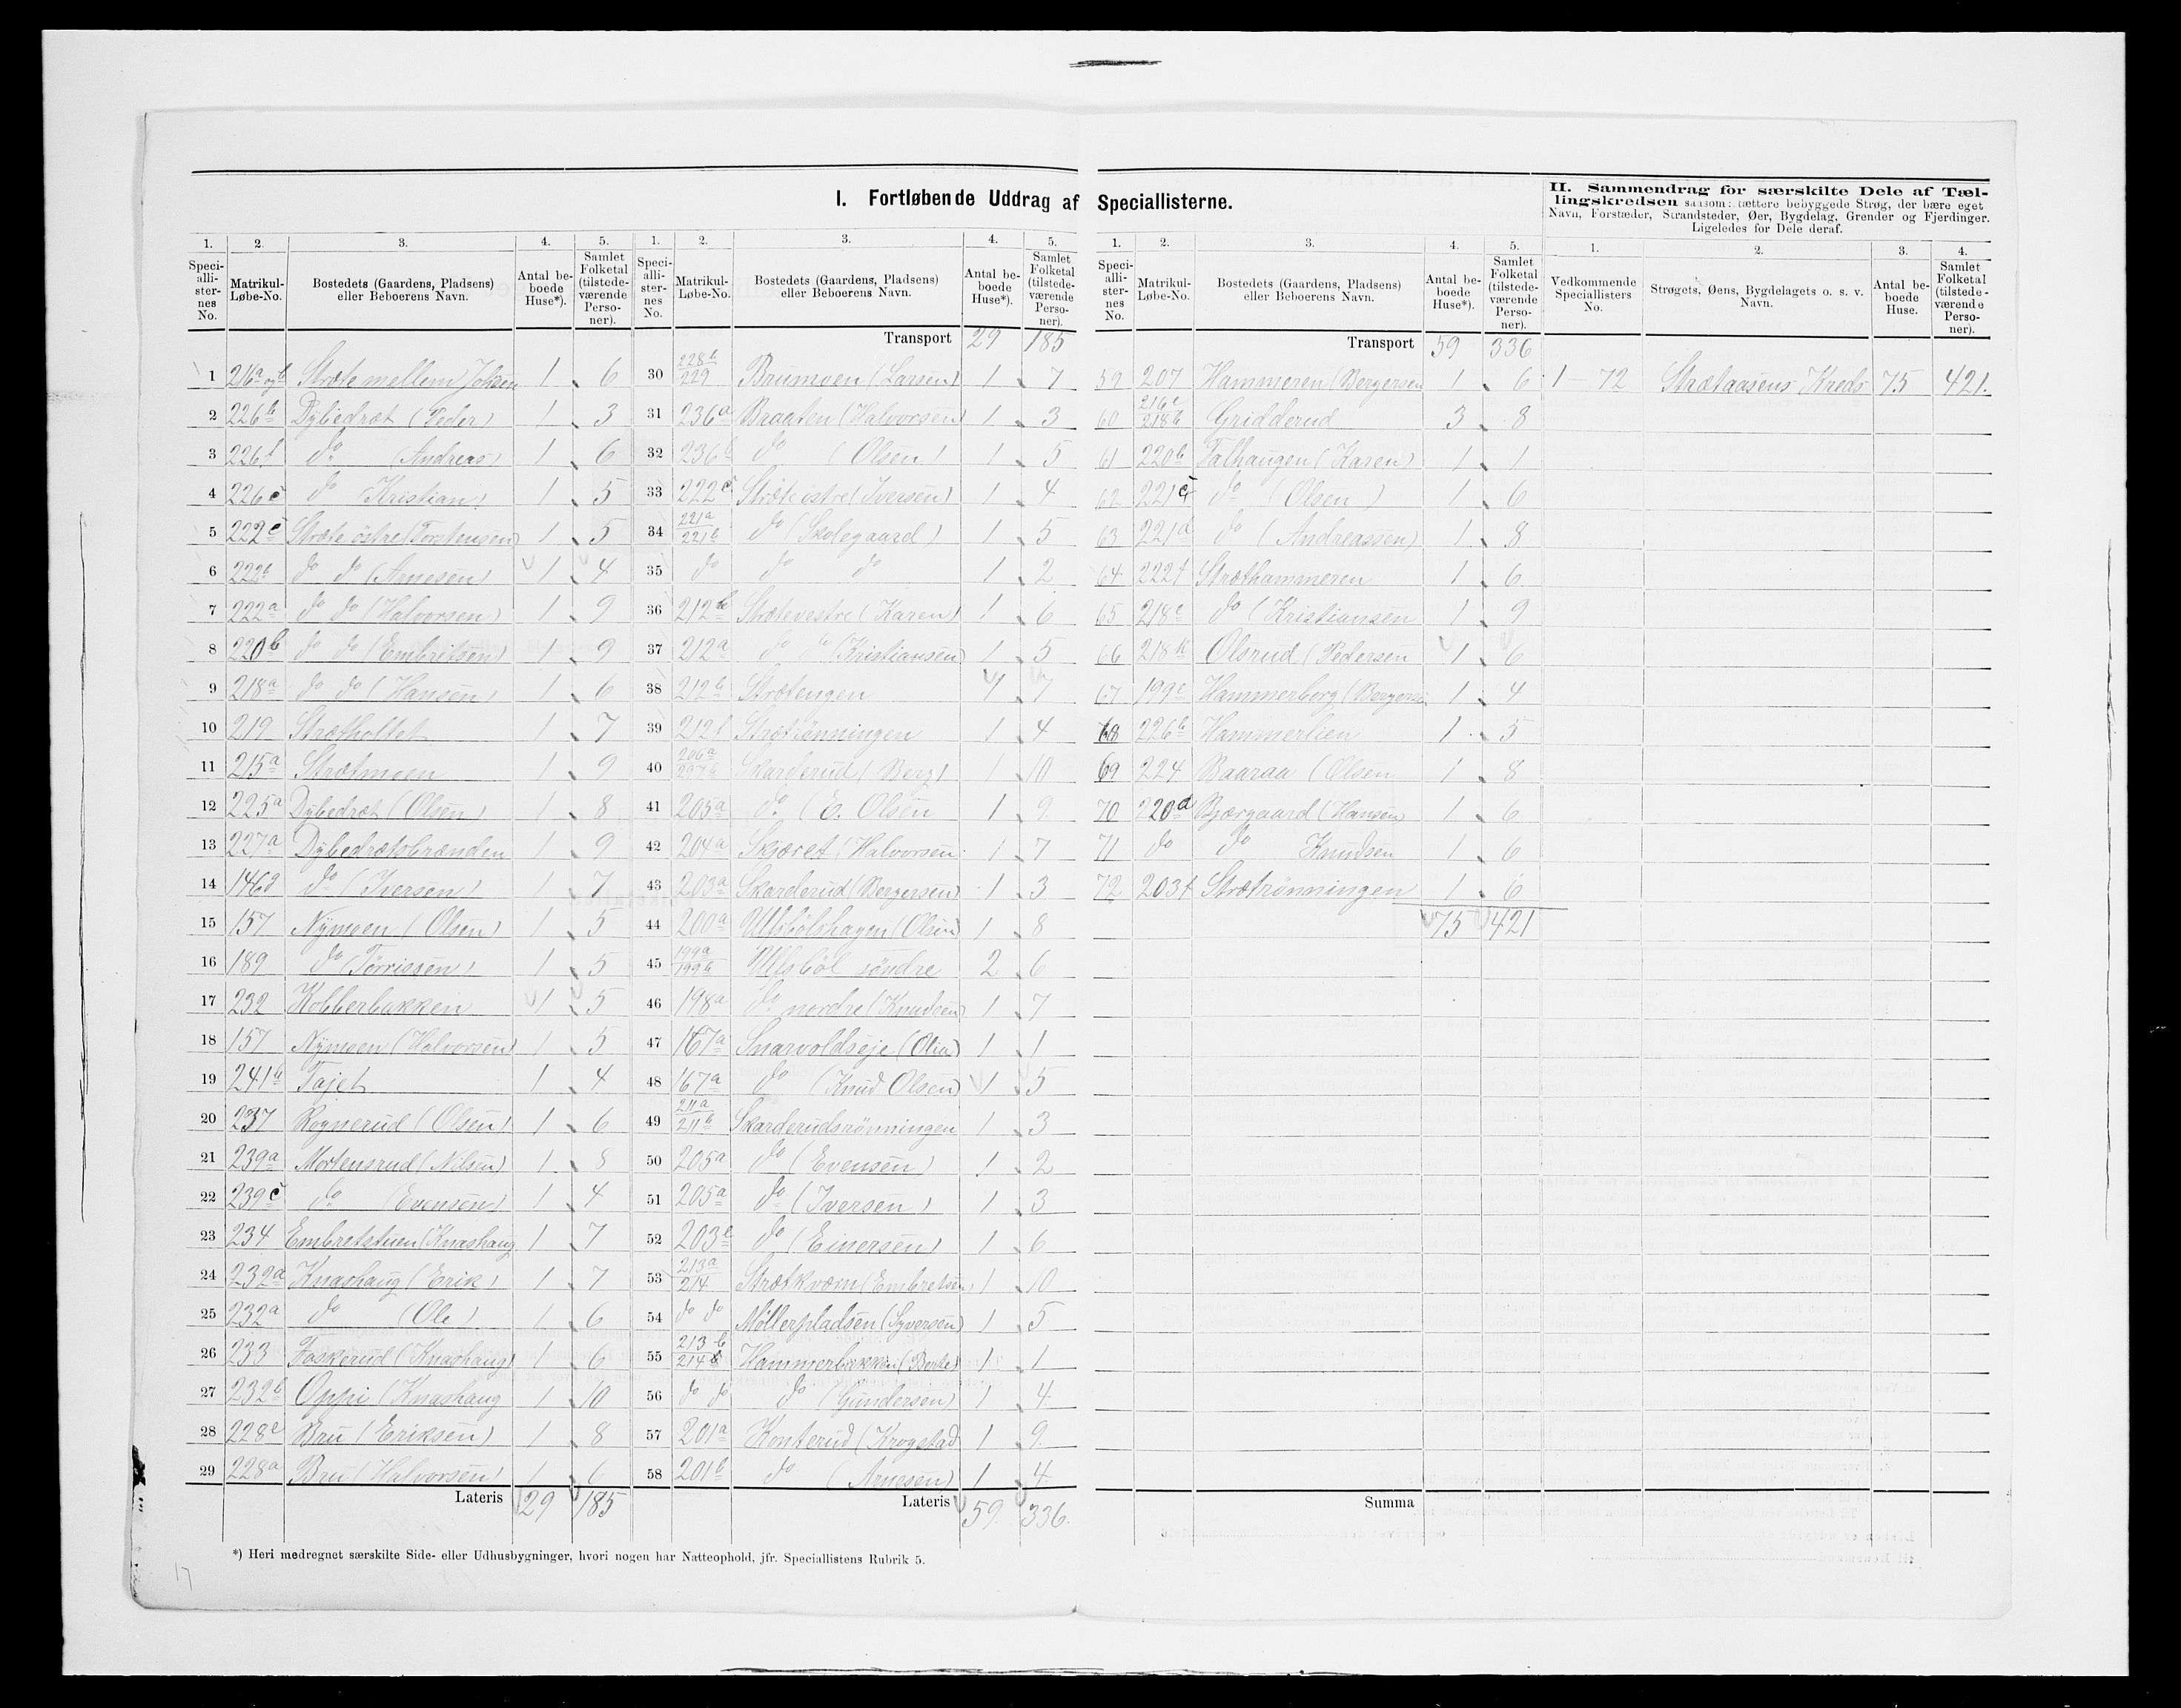 I. Fortløbende Uddrag af Speciallisterne.
II. Sammendrag for særskilte Dele af Tæl-
lingskredsen saasom: tættere bebyggede Strøg, der bære eget
Navn, Forstæder, Strandsteder, Øer, Bygdelag, Grender og Fjerdinger.
Ligeledes for Dele deraf.
1. 2. 3. 4. 5. 1. 2. 3. 4. 5. 1. 2. 3. 4. 5. 1. 2. 3. 4.
Speci-alli-ster-nes No. Matrikul-Løbe-No. Bostedets (Gaardens, Pladsens) eller Beboerens Navn. Antal be-boede Huse*). Samlet Folketal (tilstede-værende Perso-ner).
Speci-alli-ster-nes No. Matrikul-Løbe-No. Bostedets (Gaardens, Pladsens) eller Beboerens Navn. Antal be-boede Huse*). Samlet Folketal (tilstede-værende Perso-ner).
Speci-alli-ster-nes No. Matrikul-Løbe-No. Bostedets (Gaardens, Pladsens) eller Beboerens Navn. Antal be-boede Huse*). Samlet Folketal (tilstede-værende Perso-ner).
Vedkommende Speciallisters No. Strøgets, Øens, Bygdelagets o. s. v. Navn. Antal be-boede Huse. Samlet Folketal (tilstede-værende Perso-ner).
1 216a og b Stræte mellem Johsen 1 6
2 226b Dybedræt (Peder) 1 3
3 226f do (Andreas) 1 6
4 226c do (Kristian) 1 5
5 222c Stræte östre (Torstensen) 1 5
6 222b do do (Arnesen) 1 4
7 222a do do (Halvorsen) 1 9
8 220b do do (Embritsen) 1 9
9 218a do do (Hansen) 1 6
10 219 Strætholtet 1 7
11 215a Strætmoen 1 9
12 225a Dybedræt (Olsen) 1 8
13 227a Dybedrætsbrænden 1 9
14 146d do (Iversen) 1 7
15 157 Nymoen (Olsen) 1 5
16 189 do (Torrissen) 1 5
17 232 Kobberbakken 1 5
18 157 Nymoen (Halvorsen) 1 5
19 241b Tajet 1 4
20 237 Rognerud (Olsen) 1 6
21 239a Mortensrud (Nilsen) 1 8
22 239c do (Evensen) 1 4
23 234 Embretstuen (Knashaug 1 7
24 232a Knashaug (Erik) 1 7
25 232a do (Ole) 1 6
26 233 Faskerud (Knashaug) 1 6
27 232b Oppi (Knashaug 1 10
28 228c Bru (Eriksen) 1 8
29 228a Bru (Halvorsen) 1 6
Lateris 29 185
Transport 29 185
30 228b/229 Brumoen (Larsen) 1 7
31 236a Braaten (Halvorsen) 1 3
32 236b do (Olsen) 1 5
33 222c Stræte östre (Iversen) 1 4
34 221a/221b do (Skolegaard) 1 5
35 do do do 1 2
36 212b Strætevestre (Karen) 1 6
37 212a do do (Kristiansen) 1 5
38 212b Strætengen 1 7
39 212f Strætrönningen 1 4
40 206a/207b Skarderud (Berg) 1 10
41 205a do (E. Olsen 1 9
42 204a Skjæret (Halvorsen 1 7
43 203a Skarderud (Bergersen) 1 3
44 200a Ullsbölshagen (Olsen) 1 8
45 199a/199b Ullsböl söndre 2 6
46 198a do nordre (Knudsen) 1 7
47 167a Snarvoldseje (Olia) 1 1
48 167a do (Knud Olsen) 1 5
49 211a/211b Skarderudsrönningen 1 3
50 205a do (Evensen) 1 2
51 205a do (Iversen) 1 3
52 203e do (Einersen) 1 6
53 213a/214 Strætkværn (Embretsen) 1 10
54 do do Möllerpladsen (Syversen) 1 5
55 213b/214b Hammerbakken (Berte) 1 1
56 do do do (Gundersen) 1 4
57 201a Konterud (Krogstad 1 9
58 201b do (Arnesen) 1 4
Lateris 59 336
Transport 59 336
59 207 Hammeren (Bergersen 1 6
60 216c/218b Gridderud 3 8
61 220b Falhaugen (Karen) 1 1
62 221c do (Olsen) 1 6
63 221a do (Andreassen) 1 8
64 222f Stræthammeren 1 6
65 218e do (Kristiansen 1 9
66 218k Olsrud (Pedersen 1 6
67 199c Hammerborg (Bergersen 1 4
68 226b Hammerlien 1 5
69 224 Baaraa (Olsen 1 8
70 220d Bjærgaard (Hansen) 1 6
71 do do Knudsen 1 6
72 203f Strætrönningen 1 6
75 421
Summa
1–72 Strætaasens Kreds 75 421.
*) Heri medregnet særskilte Side- eller Udhusbygninger, hvori nogen har Natteophold, jfr. Speciallistens Rubrik 5.
17